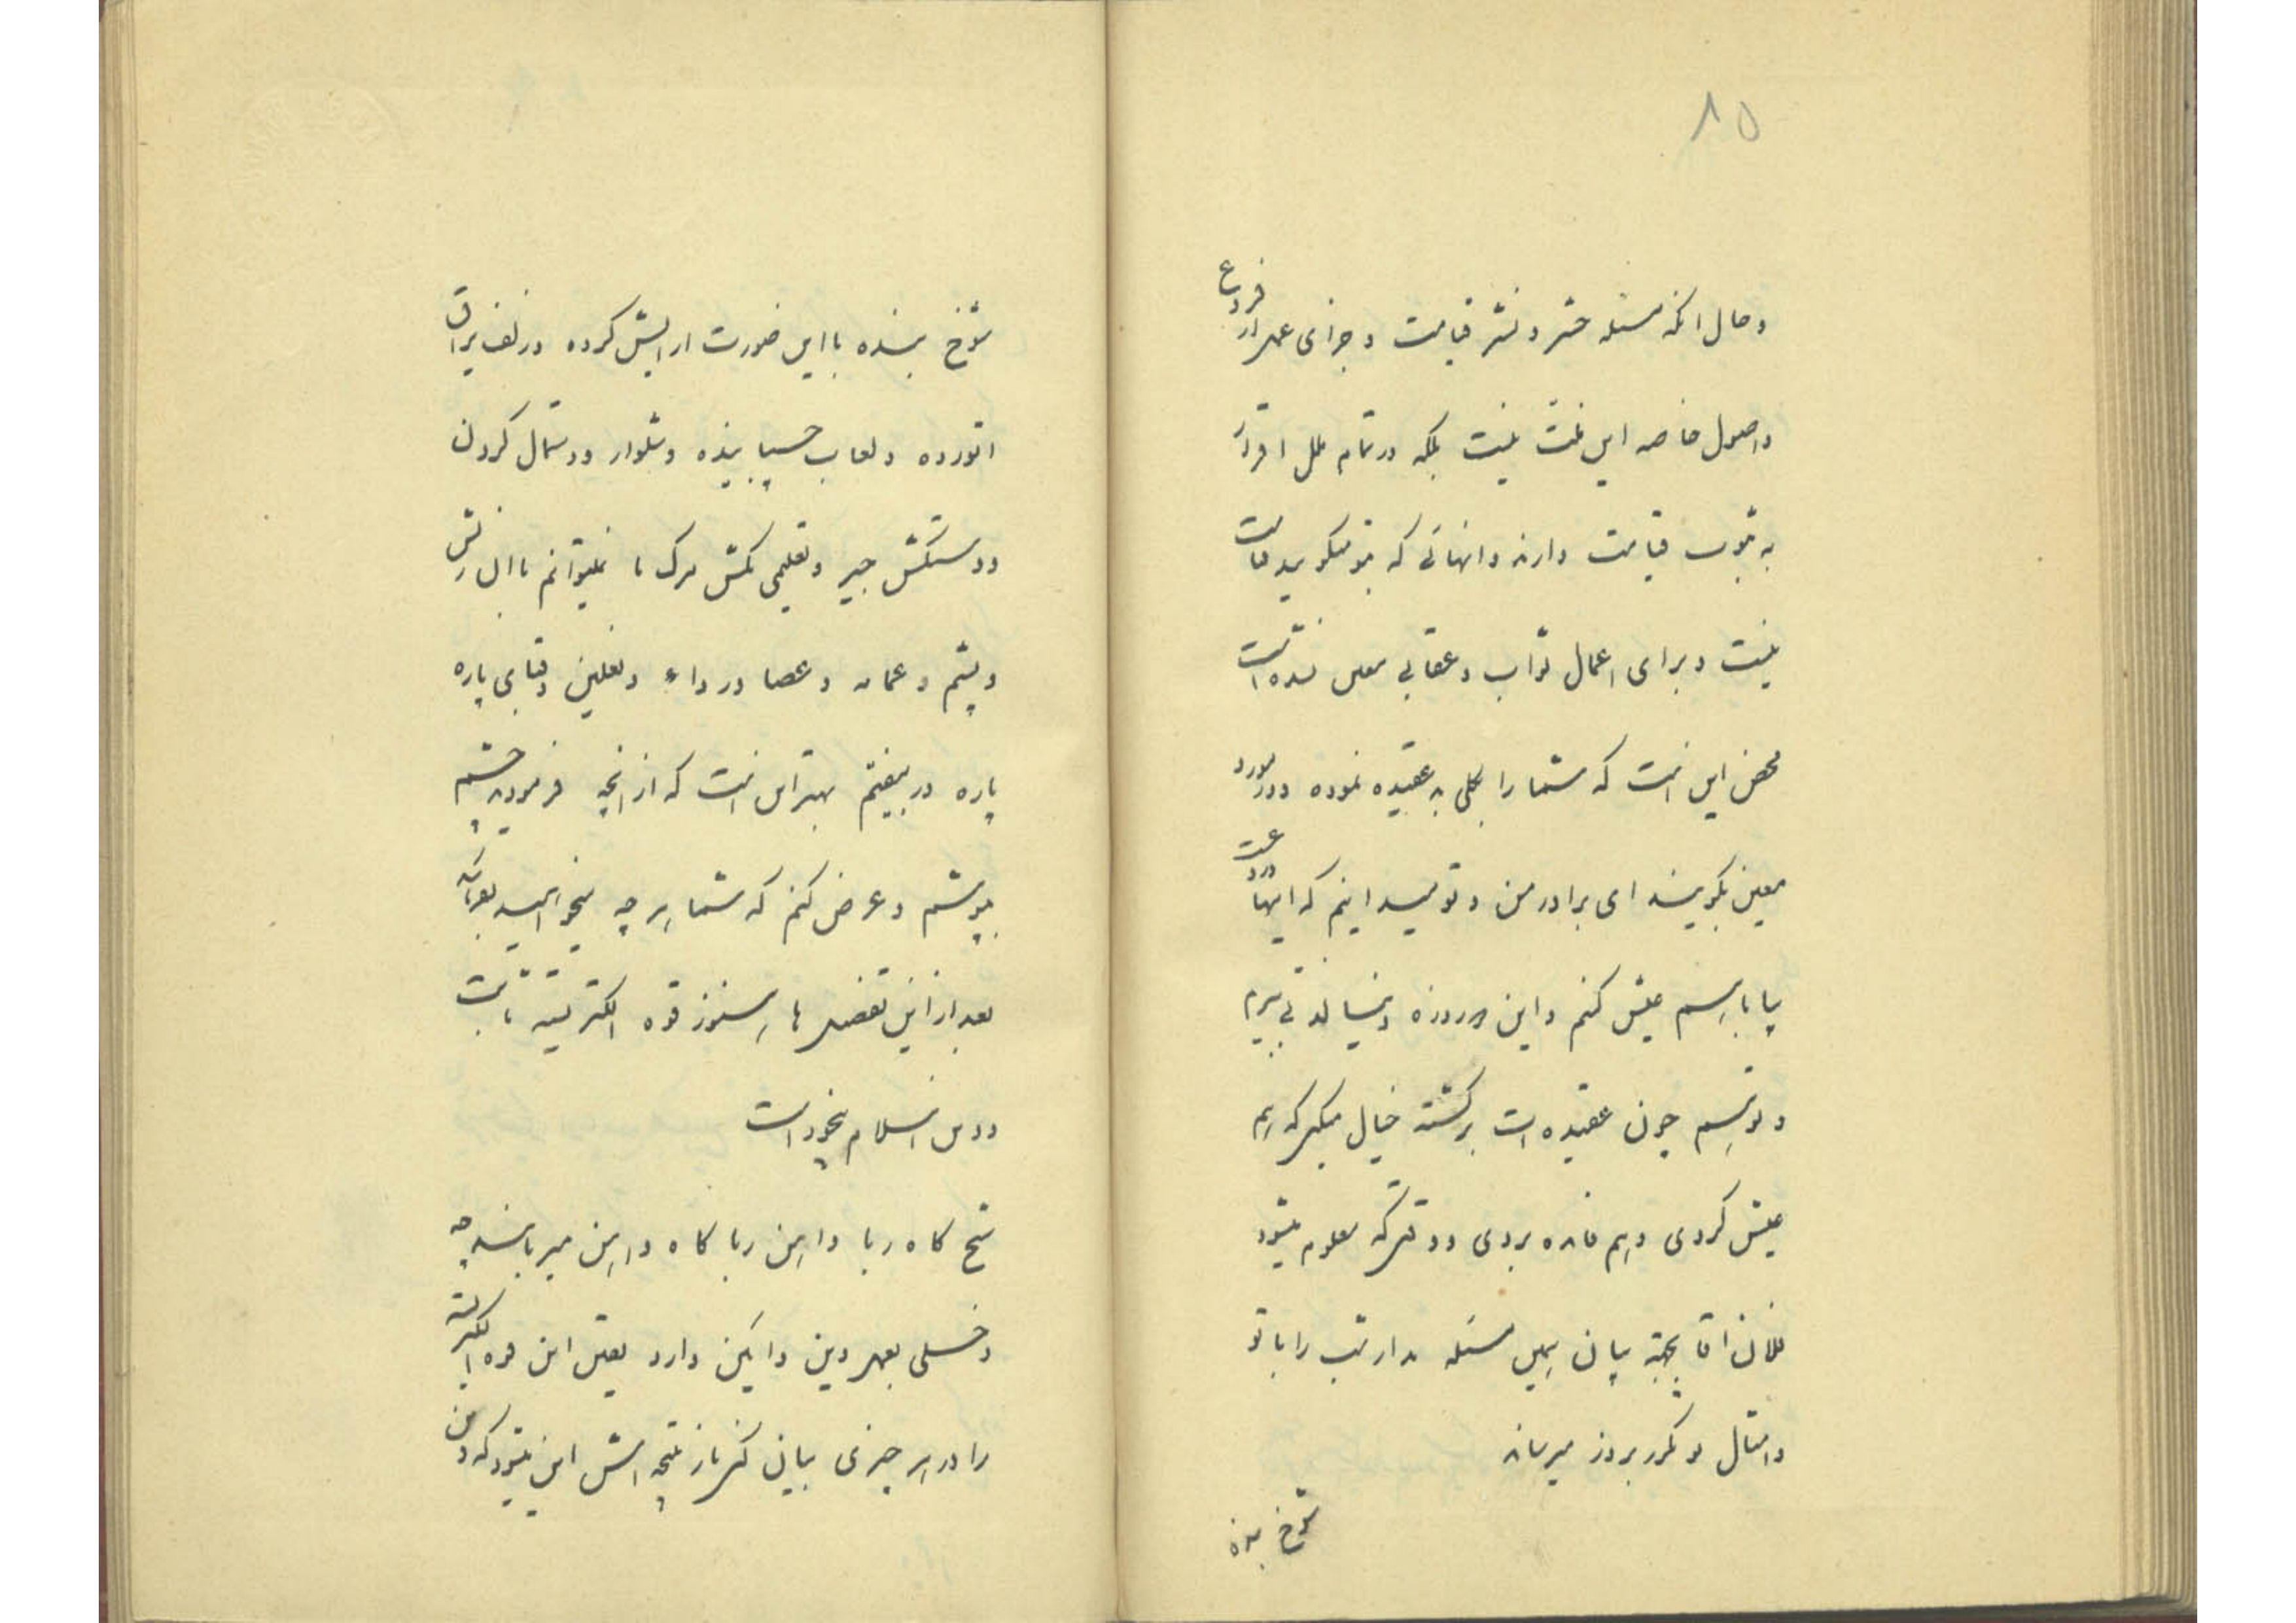 ۸۵
و حال انکه مسئله حشر و نشر قیامت و جزای عمل از فروع
و اصول خاصه این ملت نیست بلکه در تمام ملل اقرار
به ثبوت قیامت دارند و انهائی که بتو میگویند قیامت
نیست و برای اعمال ثواب و عقابی معین نشده است
محض این است که شما را بکلی بد عقیده نموده و در مورد
معین بگویند ای برادر من و تو میدانیم که اینها
بیا باهم عیش کنیم و این روزه دنیا لذتی ببریم
و تو هم چون عقیده ات برگشته خیال میکنی که هم
عیش کردی و هم فائده بردی و وقتی که معلوم میشود
فلان اقا بجهة بیان همین مسئله مدار شب را با تو
و امثال تو بروز میرساند
شوخ بنده
شوخ بنده با این صورت ارایش کرده و زلف براق
اتو زده و لعاب چسبانیده و شلوار و دستمال گردن
و دستکش جیر و تعلیمی نمیتوانم با ان ریش
و پشم و عمامه و عصا و رداء و نعلین و قبای پاره
پاره در بیفتم بهتر این است که از انچه فرمودید چشم
بپوشم و عرض کنم که شما هر چه میخواهید بفرمائید
بعد از این تفصیل ها هنوز قوه الکتریسته ثابت
و دین اسلام بخود است
شیخ کاه ربا و اهن ربا کاه و اهن میربایند چه
دخلی بعمل دین و ائین دارد یقین این قوه الکتریسته
را در هر چیزی بیان کنی باز نتیجه اش این میشود که دین